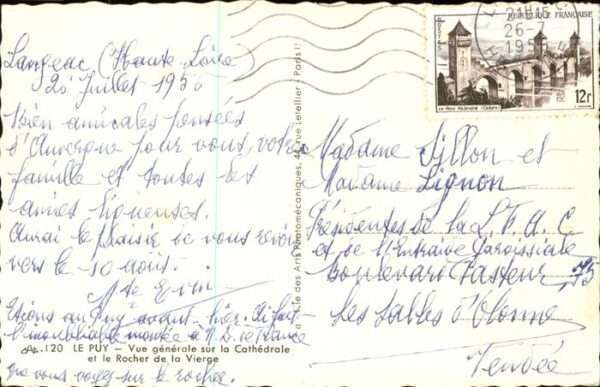 Langeac (Haute Loire)
25 Juillet 1956
Bien amicales pensées
d'Auvergne pour vous, votre
famille et toutes les
amies ligueuses.
Aurai le plaisir de vous revoir
vers le 10 août.
Etions au Puy avant-hier. Ai fait
l'inoubliable montée à N. D. de France
que vous voyez sur le rocher.
120 LE PUY – Vue générale sur la Cathédrale
et le Rocher de la Vierge
Société des Arts Photomécaniques, 44, rue Letellier - Paris
21H15
26-7
19
REPUBLIQUE FRANÇAISE
POSTES
LE PONT VALENTRÉ (CAHORS)
12F
Madame Sillon et
Madame Lignon
Présidentes de la L. F. A. C.
et de l'Entraide Paroissiale
Boulevard Pasteur 75
Les Sables d'Olonne
Vendée